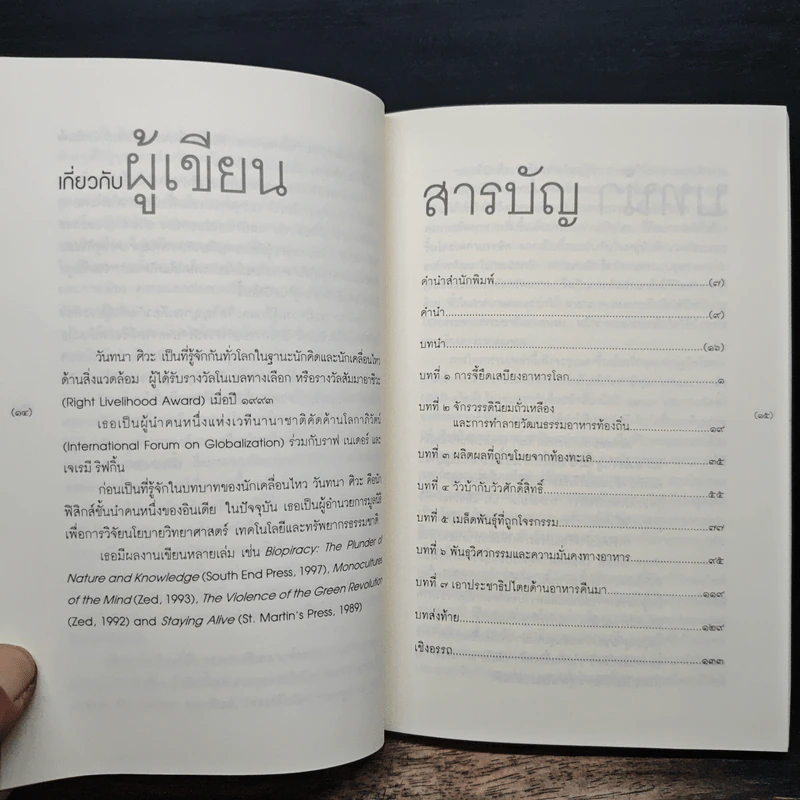 เกี่ยวกับผู้เขียน
วันทนา ศิวะ เป็นที่รู้จักกันทั่วโลกในฐานะนักคิดและนักเคลื่อนไหว
ด้านสิ่งแวดล้อม ผู้ได้รับรางวัลโนเบลทางเลือก หรือรางวัลสัมมาอาชีวะ
(Right Livelihood Award) เมื่อปี ๑๙๙๓
เธอเป็นผู้นำคนหนึ่งแห่งเวทีนานาชาติคัดค้านโลกาภิวัตน์
(International Forum on Globalization) ร่วมกับราฟ เนเดอร์ และ
เจเรมี ริฟกิ้น
ก่อนเป็นที่รู้จักในบทบาทของนักเคลื่อนไหว วันทนา ศิวะ คือนัก
ฟิสิกส์ชั้นนำคนหนึ่งของอินเดีย ในปัจจุบัน เธอเป็นผู้อำนวยการมูลนิธิ
เพื่อการวิจัยนโยบายวิทยาศาสตร์ เทคโนโลยีและทรัพยากรธรรมชาติ
เธอมีผลงานเขียนหลายเล่ม เช่น Biopiracy: The Plunder of
Nature and Knowledge (South End Press, 1997), Monocultures
of the Mind (Zed, 1993), The Violence of the Green Revolution
(Zed, 1992) and Staying Alive (St. Martin's Press, 1989)
(๑๔)
สารบัญ
คำนำสำนักพิมพ์...(๗)
คำนำ...(๙)
บทนำ...(๑๖)
บทที่ ๑ การจี้ยึดเสบียงอาหารโลก...๑
บทที่ ๒ จักรวรรดินิยมถั่วเหลือง
และการทำลายวัฒนธรรมอาหารท้องถิ่น...๑๙
บทที่ ๓ ผลิตผลที่ถูกขโมยจากท้องทะเล...๓๕
บทที่ ๔ วัวบ้ากับวัวศักดิ์สิทธิ์...๕๕
บทที่ ๕ เมล็ดพันธุ์ที่ถูกโจรกรรม...๗๗
บทที่ ๖ พันธุวิศวกรรมและความมั่นคงทางอาหาร...๙๕
บทที่ ๗ เอาประชาธิปไตยด้านอาหารคืนมา...๑๑๙
บทส่งท้าย...๑๒๙
เชิงอรรถ...๑๓๓
(๑๕)